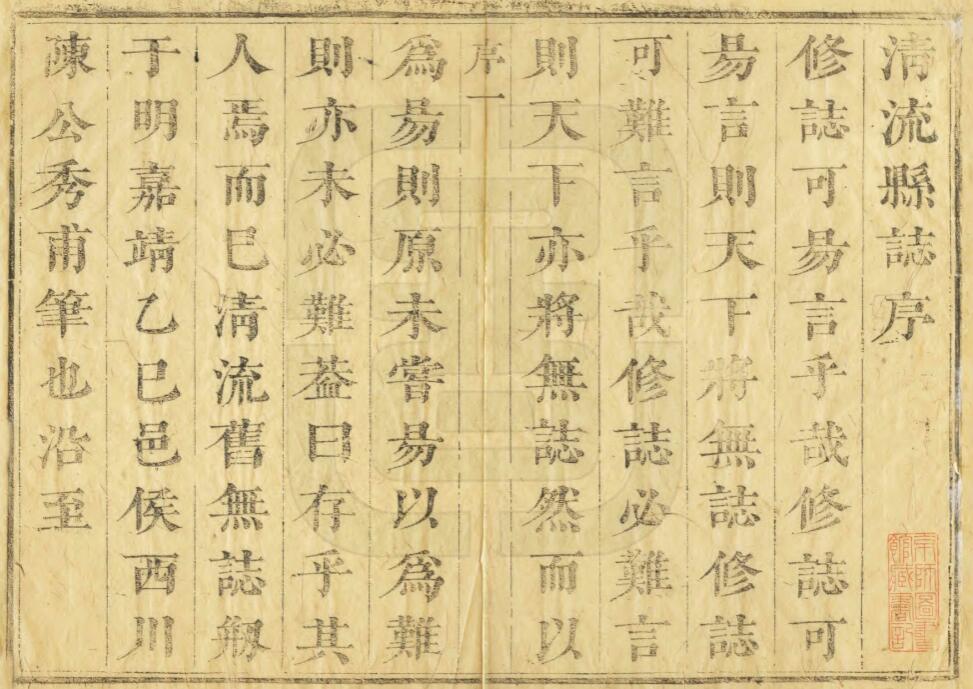 清流縣誌序
修誌可易言乎哉修誌可
易言則天下將無誌修誌
可難言乎哉修誌必難言
則天下亦將無誌然而以
序一
為易則原未嘗易以為難
則亦未必難葢曰存乎其
人焉而已清流舊無誌剏
于明嘉靖乙巳邑侯西川
陳公秀甫筆也沿至